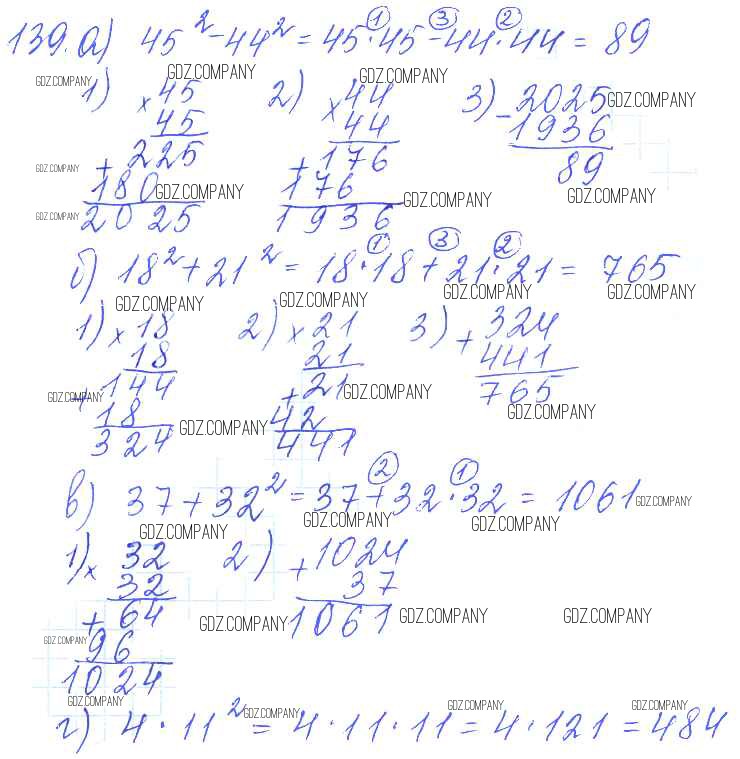 139. а) 45² - 44² = 45 · 45 - 44 · 44 = 89
① ③ ②
GDZ.COMPANY GDZ.COMPANY GDZ.COMPANY
1) × 45 2) × 44 3) - 2025 GDZ.COMPANY
45 44 1936
GDZ.COMPANY + 225 + 176 89
180 GDZ.COMPANY 176 GDZ.COMPANY GDZ.COMPANY
GDZ.COMPANY 2025 1936
① ③ ②
б) 18² + 21² = 18 · 18 + 21 · 21 = 765
GDZ.COMPANY GDZ.COMPANY GDZ.COMPANY GDZ.COMPANY
1) × 18 2) × 21 3) + 324
18 21 441
GDZ.COMPANY + 144 + 21 GDZ.COMPANY 765
18 GDZ.COMPANY 42 GDZ.COMPANY
324 441
② ①
в) 37 + 32² = 37 + 32 · 32 = 1061 GDZ.COMPANY
GDZ.COMPANY GDZ.COMPANY GDZ.COMPANY
1) × 32 2) + 1024
32 37
+ 64 GDZ.COMPANY 1061 GDZ.COMPANY GDZ.COMPANY
GDZ.COMPANY 96
1024
GDZ.COMPANY GDZ.COMPANY GDZ.COMPANY GDZ.COMPANY
г) 4 · 11² = 4 · 11 · 11 = 4 · 121 = 484